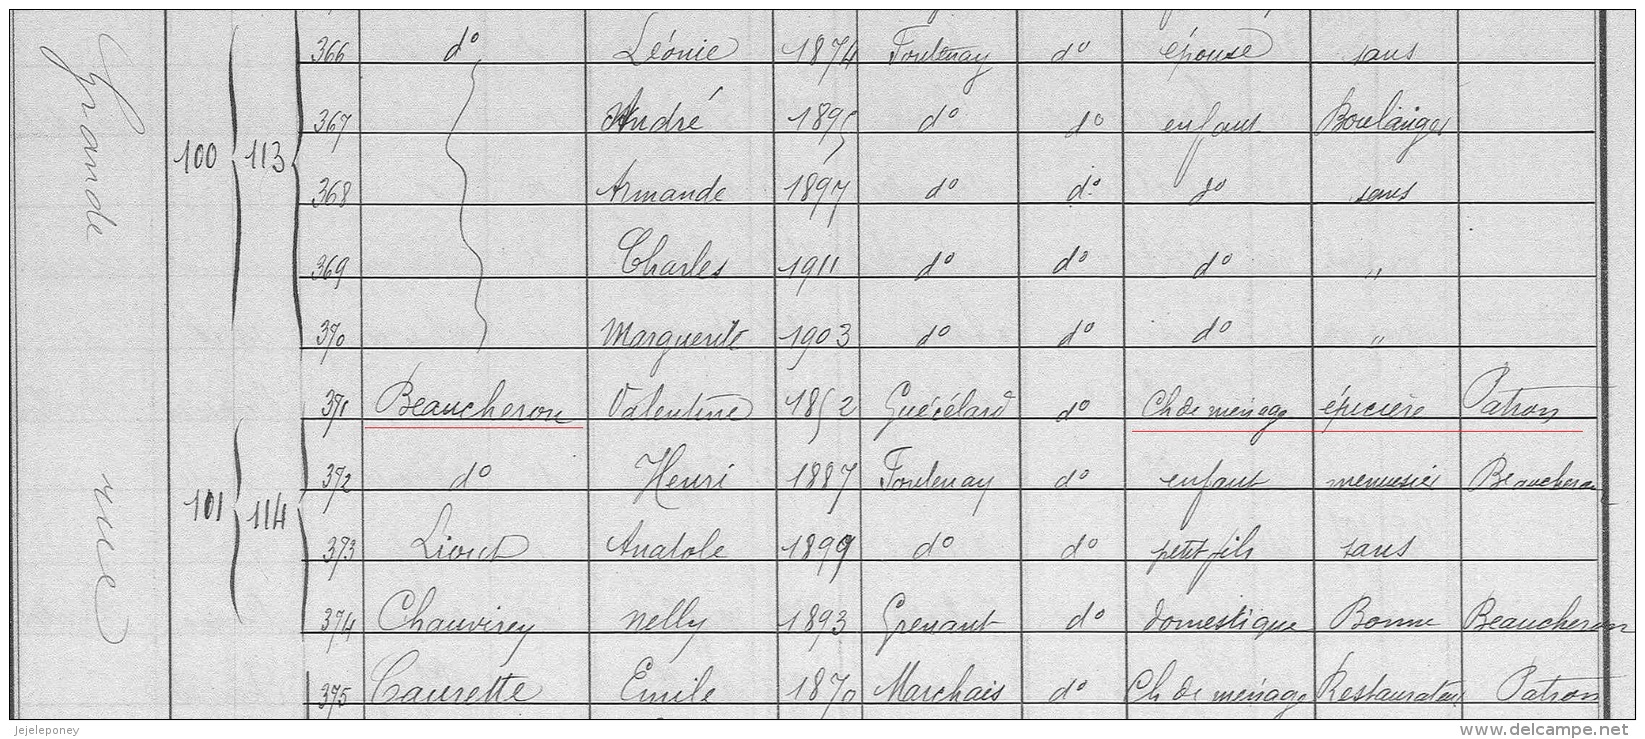 Grande rue
366 do Léonie 1874 Fontenay do épouse sans
367 André 1895 do do enfant Boulanger
100 113
368 Armande 1897 do do do sans
369 Charles 1911 do do do "
370 Marguerite 1903 do do do "
371 Beaucheron Valentine 1852 Guécélard do Ch de ménage épicière Patron
372 do Henri 1887 Fontenay do enfant menuisier Beaucheron
101 114
373 Anatole 1899 do do petit fils sans
374 Chauvirey Nelly 1893 Grenant do domestique Bonne Beaucheron
375 Caurette Emile 1870 Marchais do Ch de ménage Restaurateur Patron
jejeleponey
www.delcampe.net